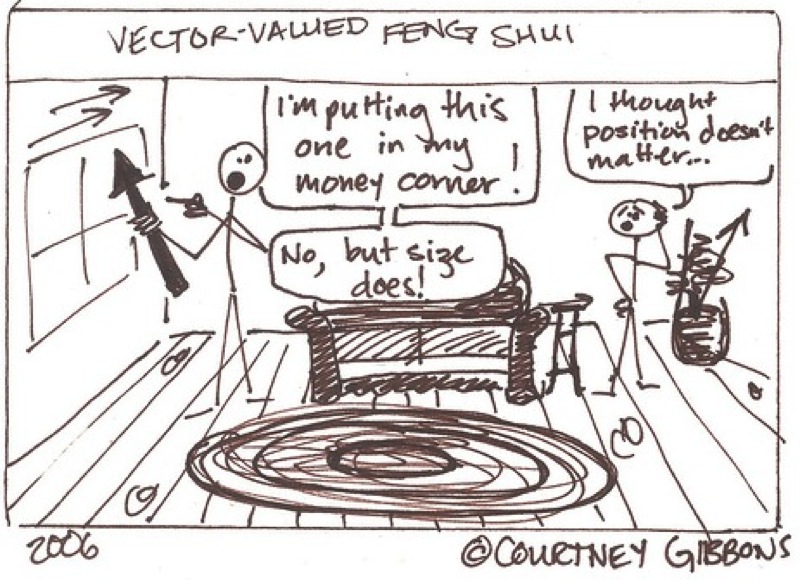 VECTOR-VALUED FENG SHUI
I'm putting this
one in my
money corner!
I thought
position doesn't
matter...
No, but size
does!
2006
©COURTNEY GIBBONS